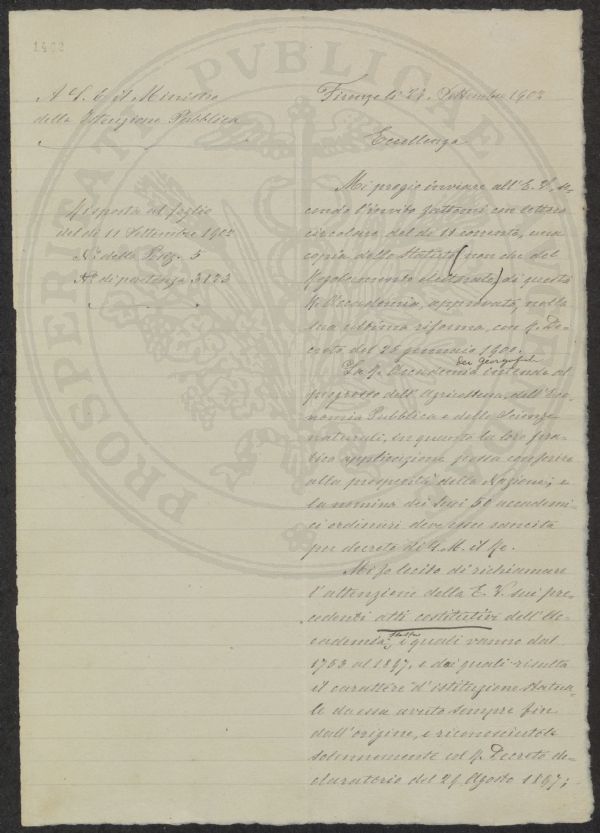 1402
PROSPERITATI PUBLICAE
A S. E. il Ministro
della Istruzione Pubblica
Risposta al foglio
del dì 11 Settembre 1902
N.º della Div. 5
N.º di partenza 3123
Firenze lì 24 Settembre 1902
Eccellenza
Mi pregio inviare all'E. V., se-
condo l'invito fattomi con lettera
circolare del dì 11 corrente, una
copia dello Statuto (non che del
Regolamento elettorale) di questa
R. Accademia, approvato, nella
sua ultima riforma, con R. De-
creto del 28 gennaio 1900.
La R. Accademia dei Georgofili intende al
progresso dell'Agricoltura, dell'Eco-
nomia Pubblica e delle Scienze
naturali, in quanto la loro pra-
tica applicazione possa conferire
alla prosperità della Nazione; e
la nomina dei suoi 50 accademi-
ci ordinari deve esser sancita
per decreto di S. M. il Re.
Mi fo lecito di richiamare
l'attenzione della E. V. sui pre-
cedenti atti costitutivi dell'Ac-
cademia stessa, i quali vanno dal
1753 al 1897, e dai quali risulta
il carattere d'istituzione statua-
le da essa avuto sempre fin
dall'origine, e riconosciutole
solennemente col R. Decreto de-
claratorio del 24 Agosto 1897;